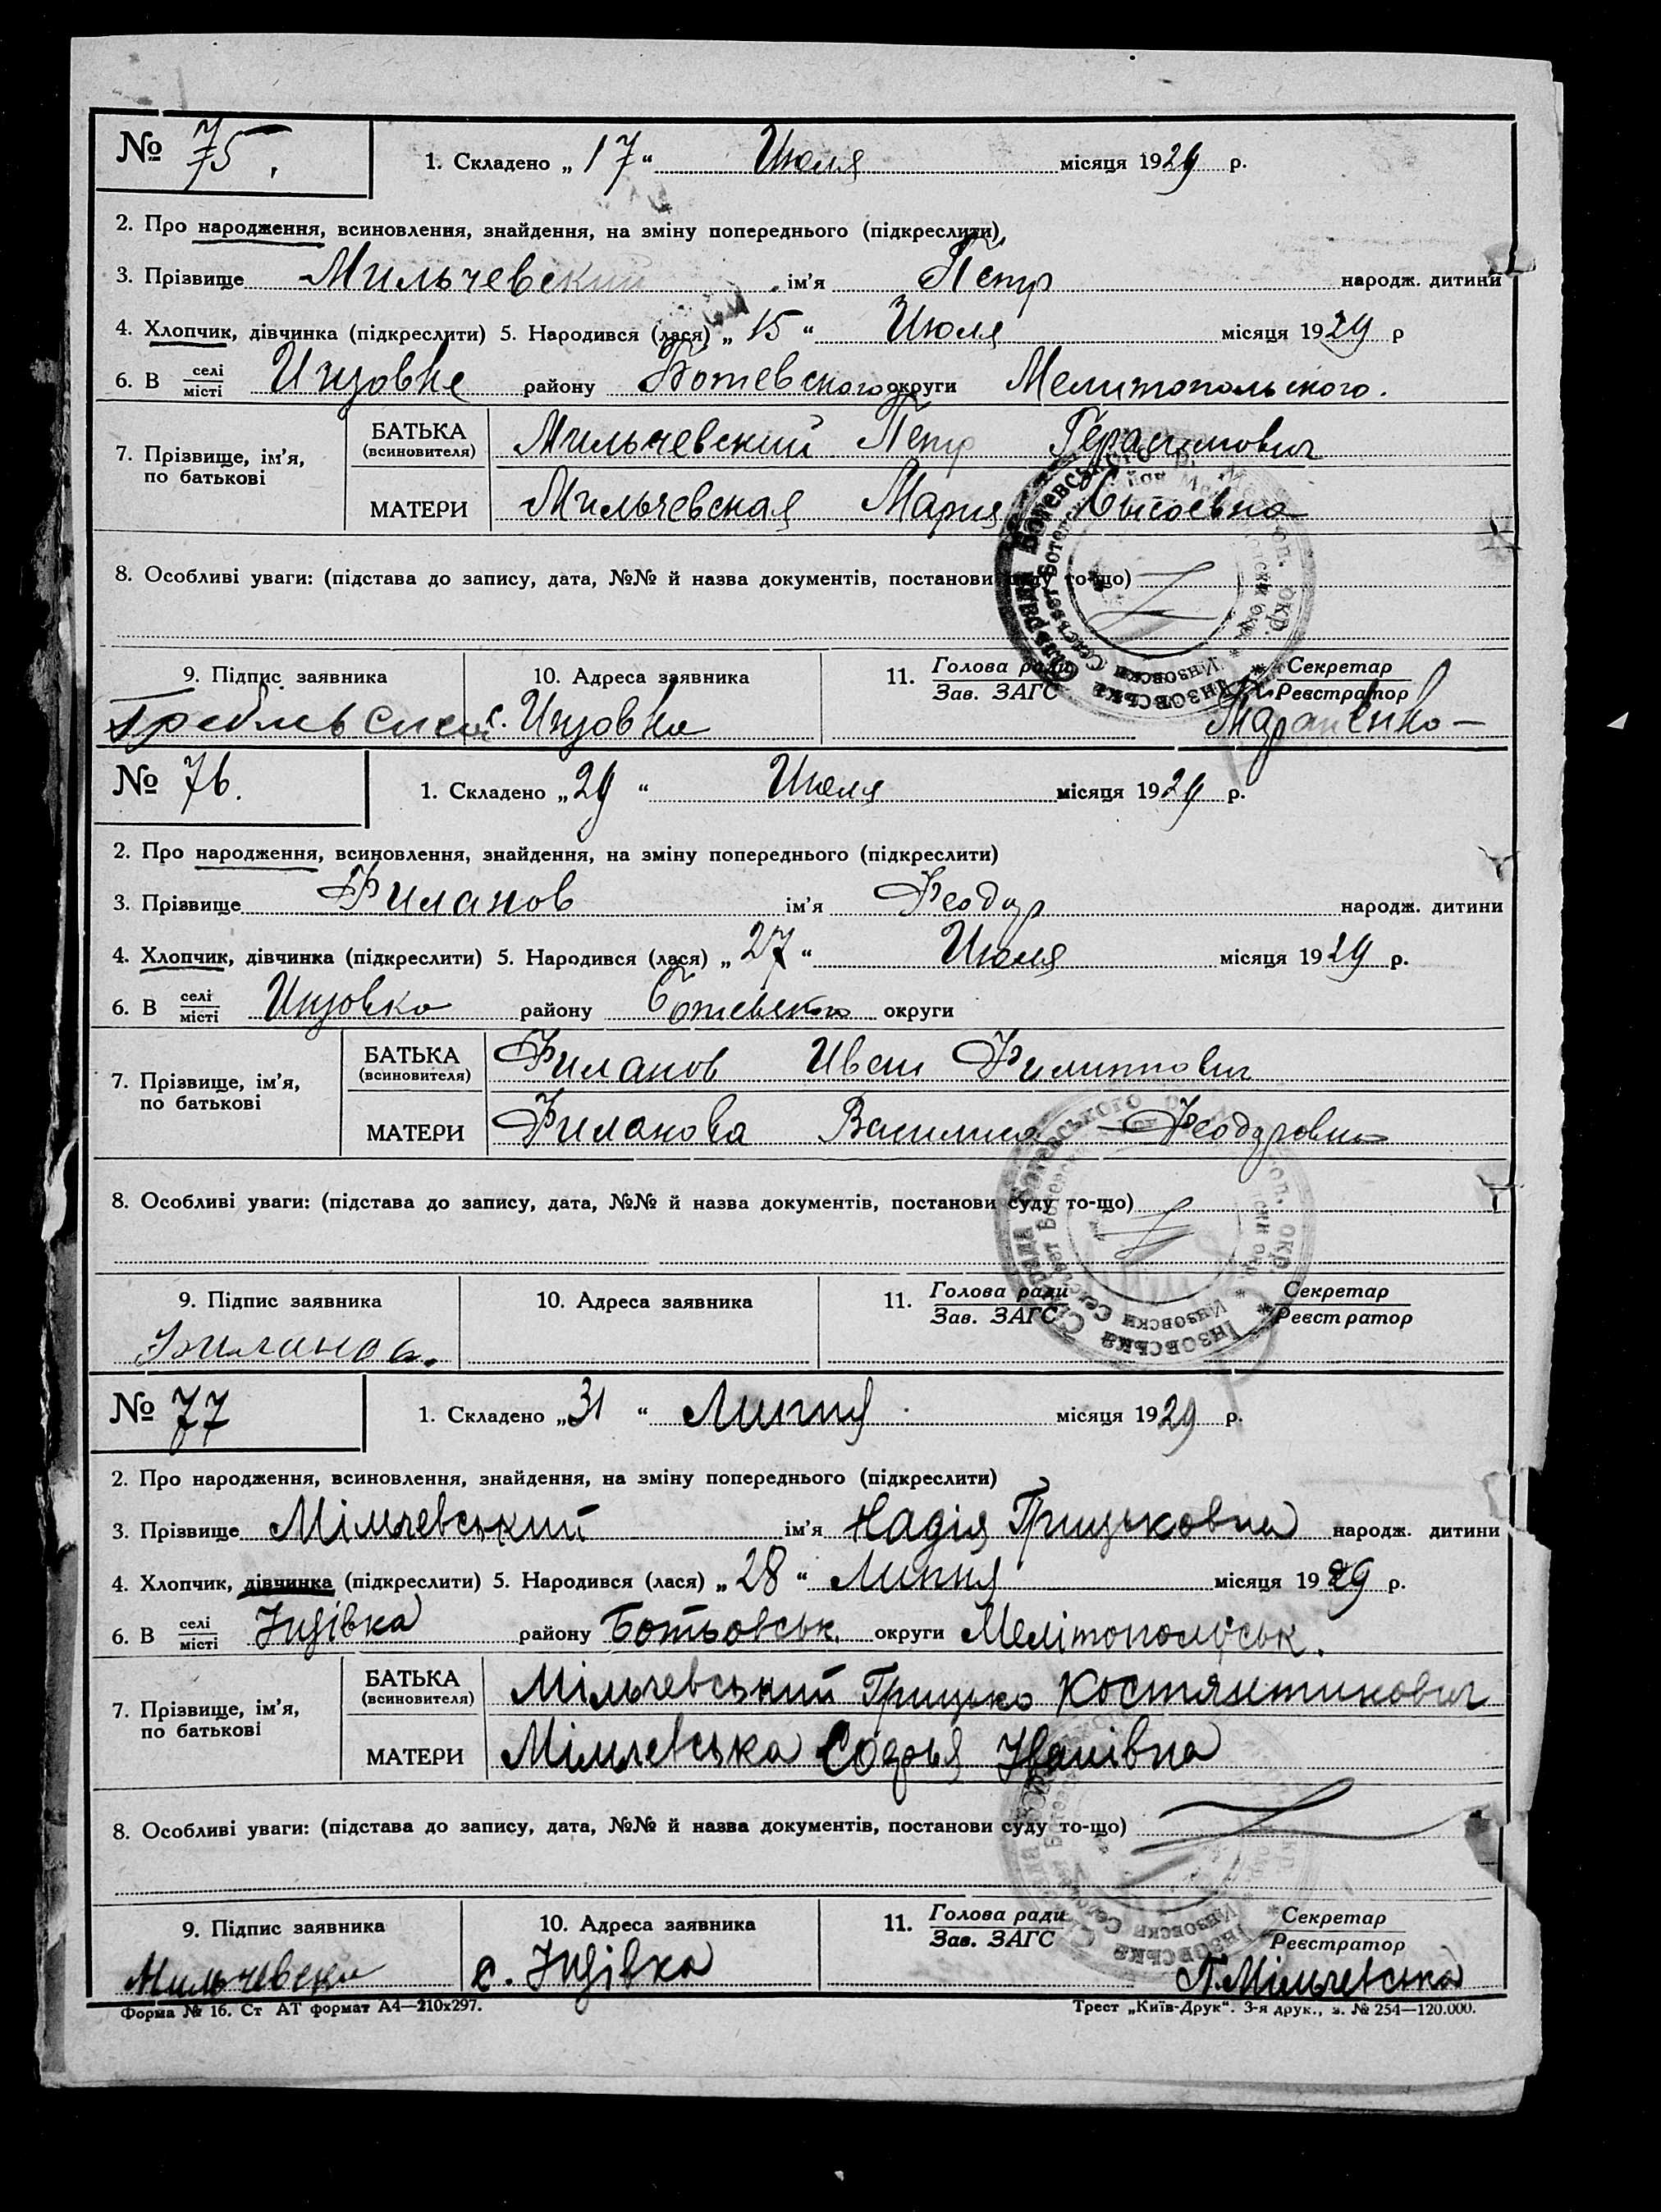 № 75. 1. Складено „17“ Июля місяця 1929 р.
2. Про народження, всиновлення, знайдення, на зміну попереднього (підкреслити)
3. Прізвище Мильчевский ім'я Петр народж. дитини
4. Хлопчик, дівчинка (підкреслити) 5. Народився (лася) „15“ Июля місяця 1929 р
6. В селі місті Инзовке району Ботевского округи Мелитопольского.
БАТЬКА (всиновителя) Мильчевский Петр Герасимович
7. Прізвище, ім'я, по батькові
МАТЕРИ Мильчевская Мария
8. Особливі уваги: (підстава до запису, дата, №№ й назва документів, постанови суду то-що)
9. Підпис заявника 10. Адреса заявника 11. Голова ради Зав. ЗАГС Секретар Реєстратор
с. Инзовка
№ 76. 1. Складено „29“ Июля місяця 1929 р.
2. Про народження, всиновлення, знайдення, на зміну попереднього (підкреслити)
3. Прізвище Филанов ім'я Феодор народж. дитини
4. Хлопчик, дівчинка (підкреслити) 5. Народився (лася) „27“ Июля місяця 1929 р.
6. В селі місті Инзовка району Ботевского округи
БАТЬКА (всиновителя) Филанов Иван Филиппович
7. Прізвище, ім'я, по батькові
МАТЕРИ Филанова Василиса Феодоровна
8. Особливі уваги: (підстава до запису, дата, №№ й назва документів, постанови суду то-що)
9. Підпис заявника 10. Адреса заявника 11. Голова ради Зав. ЗАГС Секретар Реєстратор
Филанов.
№ 77 1. Складено „31“ Липня місяця 1929 р.
2. Про народження, всиновлення, знайдення, на зміну попереднього (підкреслити)
3. Прізвище Мільчевський ім'я Надія Грицьковна народж. дитини
4. Хлопчик, дівчинка (підкреслити) 5. Народився (лася) „28“ Липня місяця 1929 р.
6. В селі місті Інзівка району Ботьовськ. округи Мелітопольськ.
БАТЬКА (всиновителя) Мільчевський Грицько Костянтинович
7. Прізвище, ім'я, по батькові
МАТЕРИ Мільчевська Софья Іванівна
8. Особливі уваги: (підстава до запису, дата, №№ й назва документів, постанови суду то-що)
9. Підпис заявника 10. Адреса заявника 11. Голова ради Зав. ЗАГС Секретар Реєстратор
с. Інзівка П. Мільчевська
Форма № 16. Ст АТ формат А4—210х297. Трест „Київ-Друк“. 3-я друк., з. № 254—120.000.